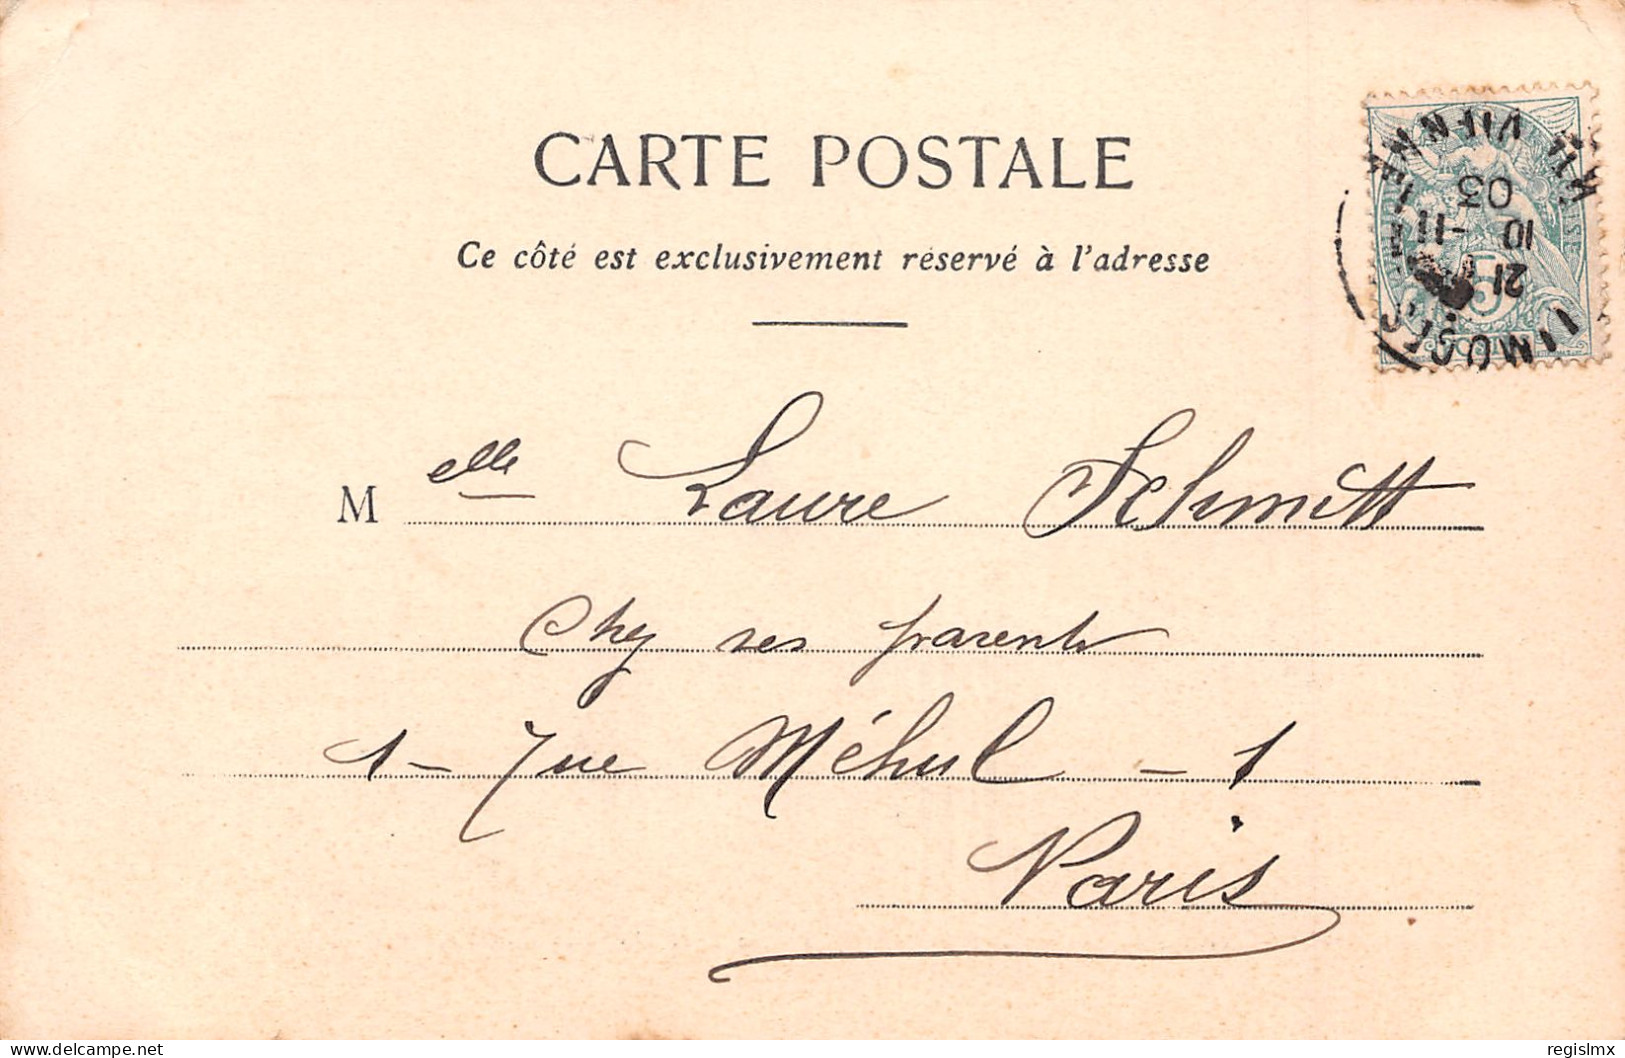 CARTE POSTALE
Ce côté est exclusivement réservé à l'adresse
LIMOGES
Hte VIENNE
21
10 -11
03
5
Melle Laure Schmitt
Chez ses parents
1 - rue Méhul - 1
Paris
delcampe.net
regislmx